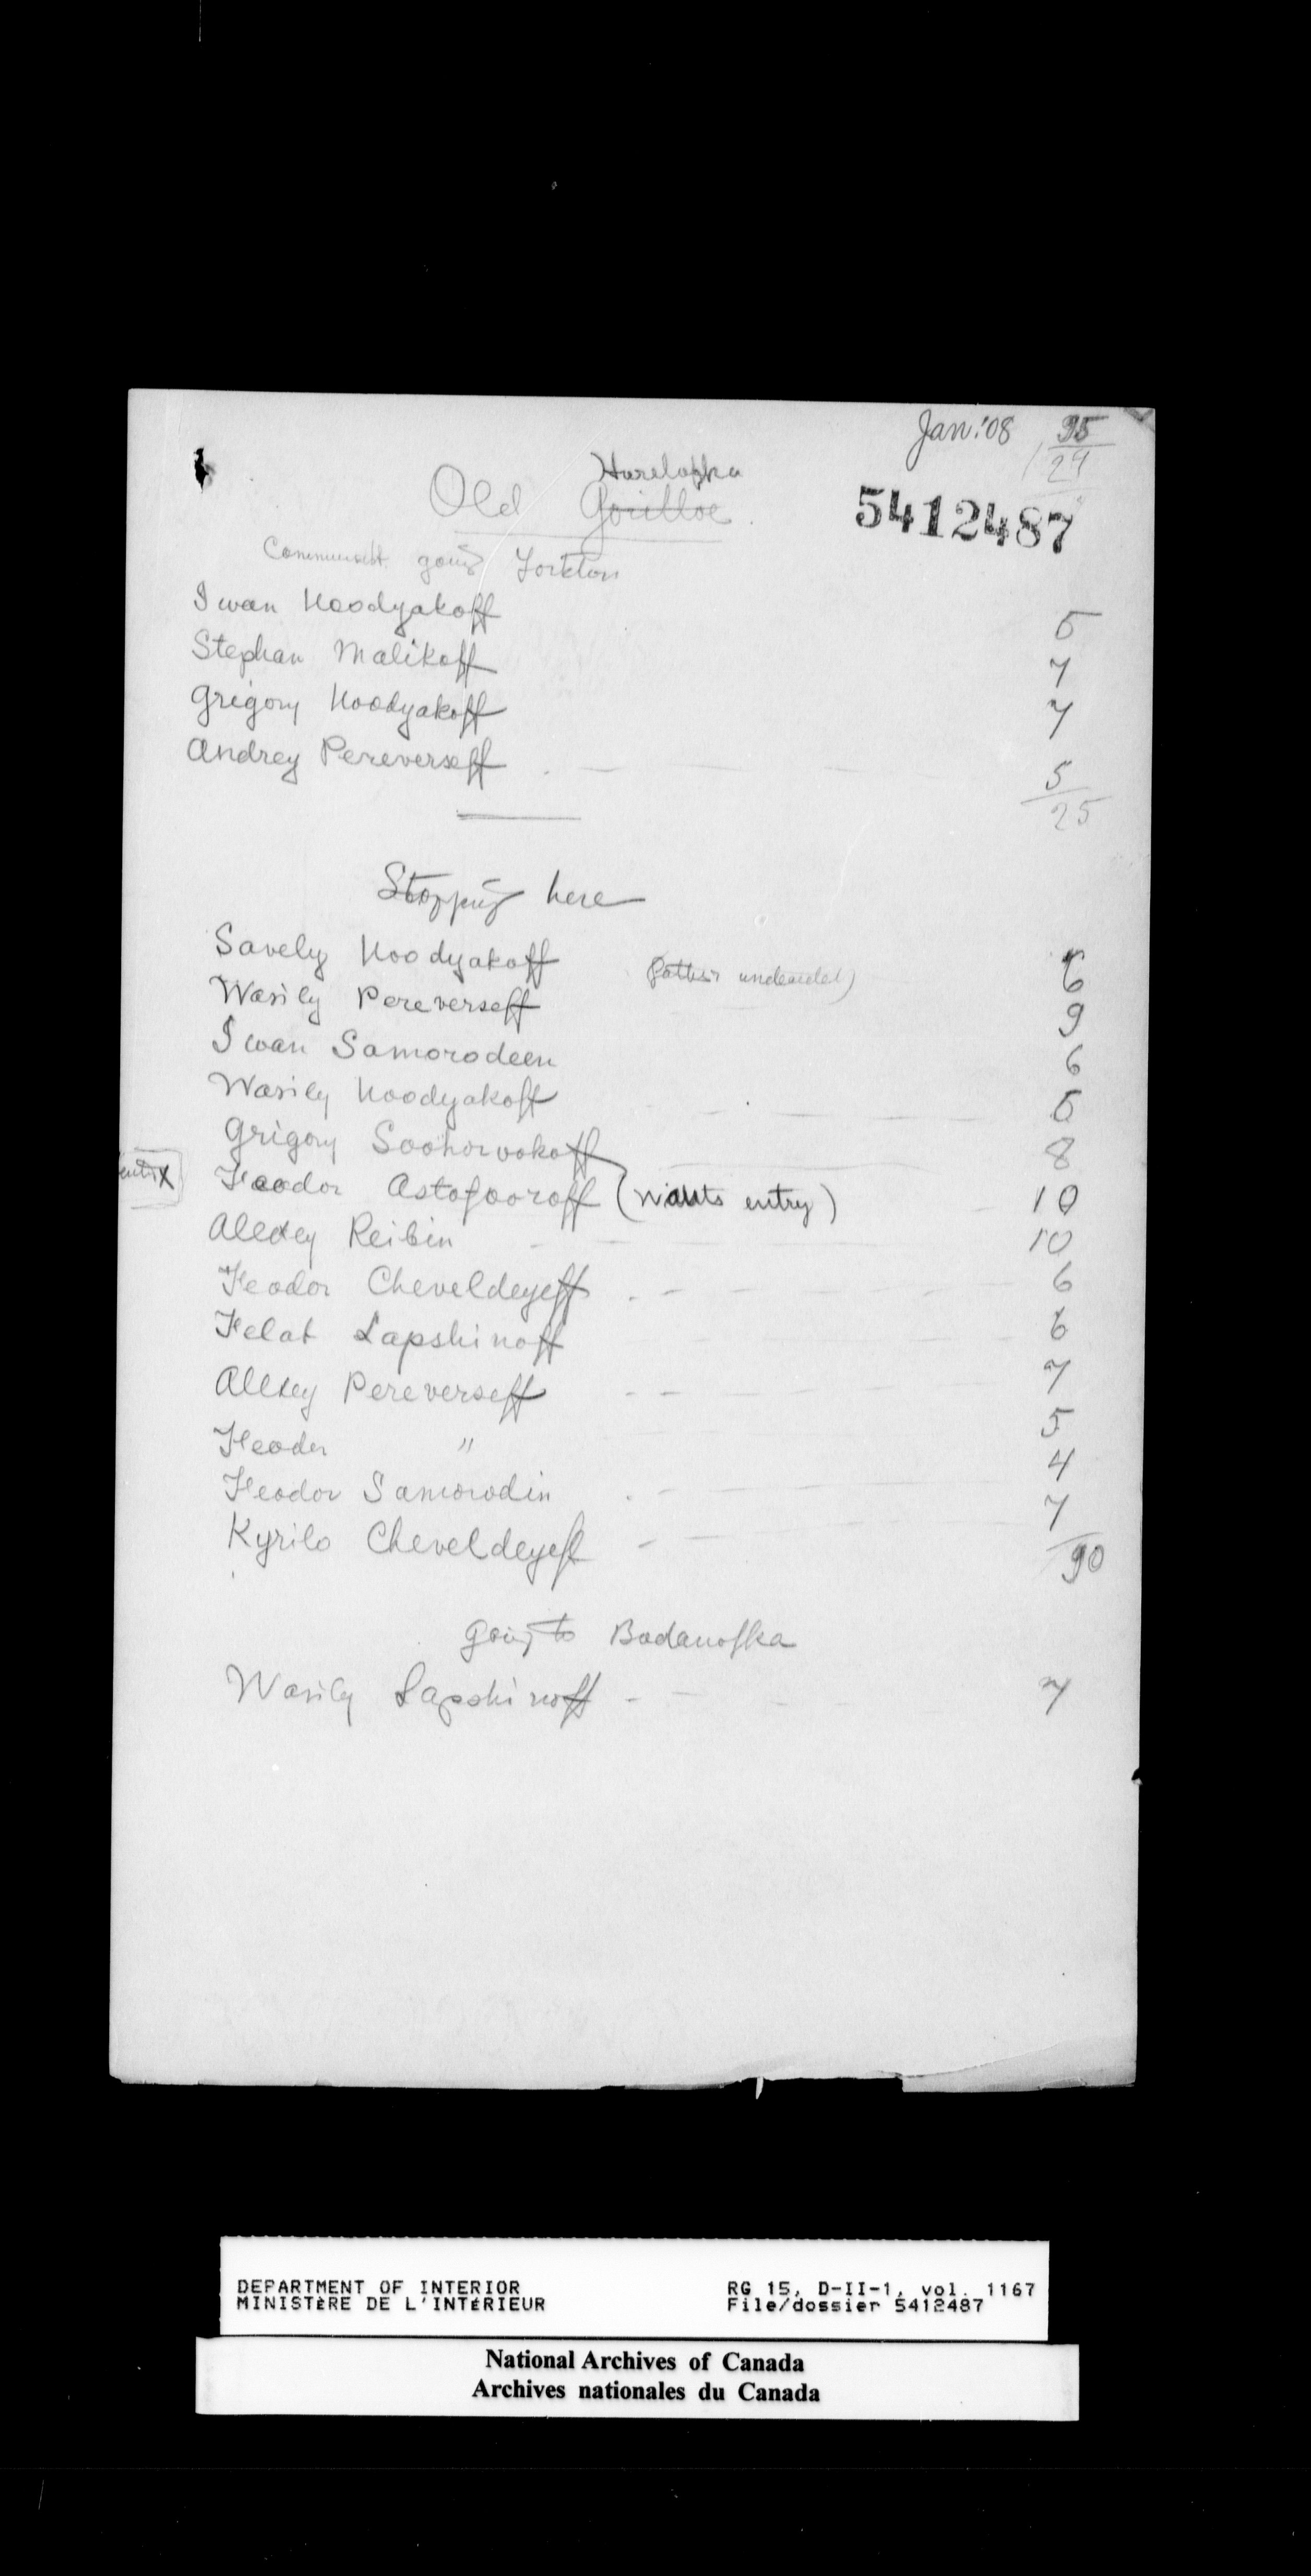 Jan. '08 95
24
Horelofka
Old Gorilloe
5412487
Communist going Yorkton
Iwan Hoodyakoff 5
Stephan Malikoff 7
Grigory Hoodyakoff 7
Andrey Pereverseff 5
25
Stopping here
Savely Hoodyakoff (father undecided) 6
Wasily Pereverseff 9
Iwan Samorodeen 6
Wasily Hoodyakoff 6
Grigory Soohorvokoff 8
X Feodor Astafooroff (wants entry) 10
Alexey Reibin 10
Feodor Cheveldeyeff 6
Felat Lapshinoff 6
Alexey Pereverseff 7
Feodor " 5
Feodor Samorodin 4
Kyrilo Cheveldeyeff 7
90
going to Bodanofka
Wasily Lapshinoff 7
DEPARTMENT OF INTERIOR RG 15, D-II-1, vol. 1167
MINISTÈRE DE L'INTÉRIEUR File/dossier 5412487
National Archives of Canada
Archives nationales du Canada